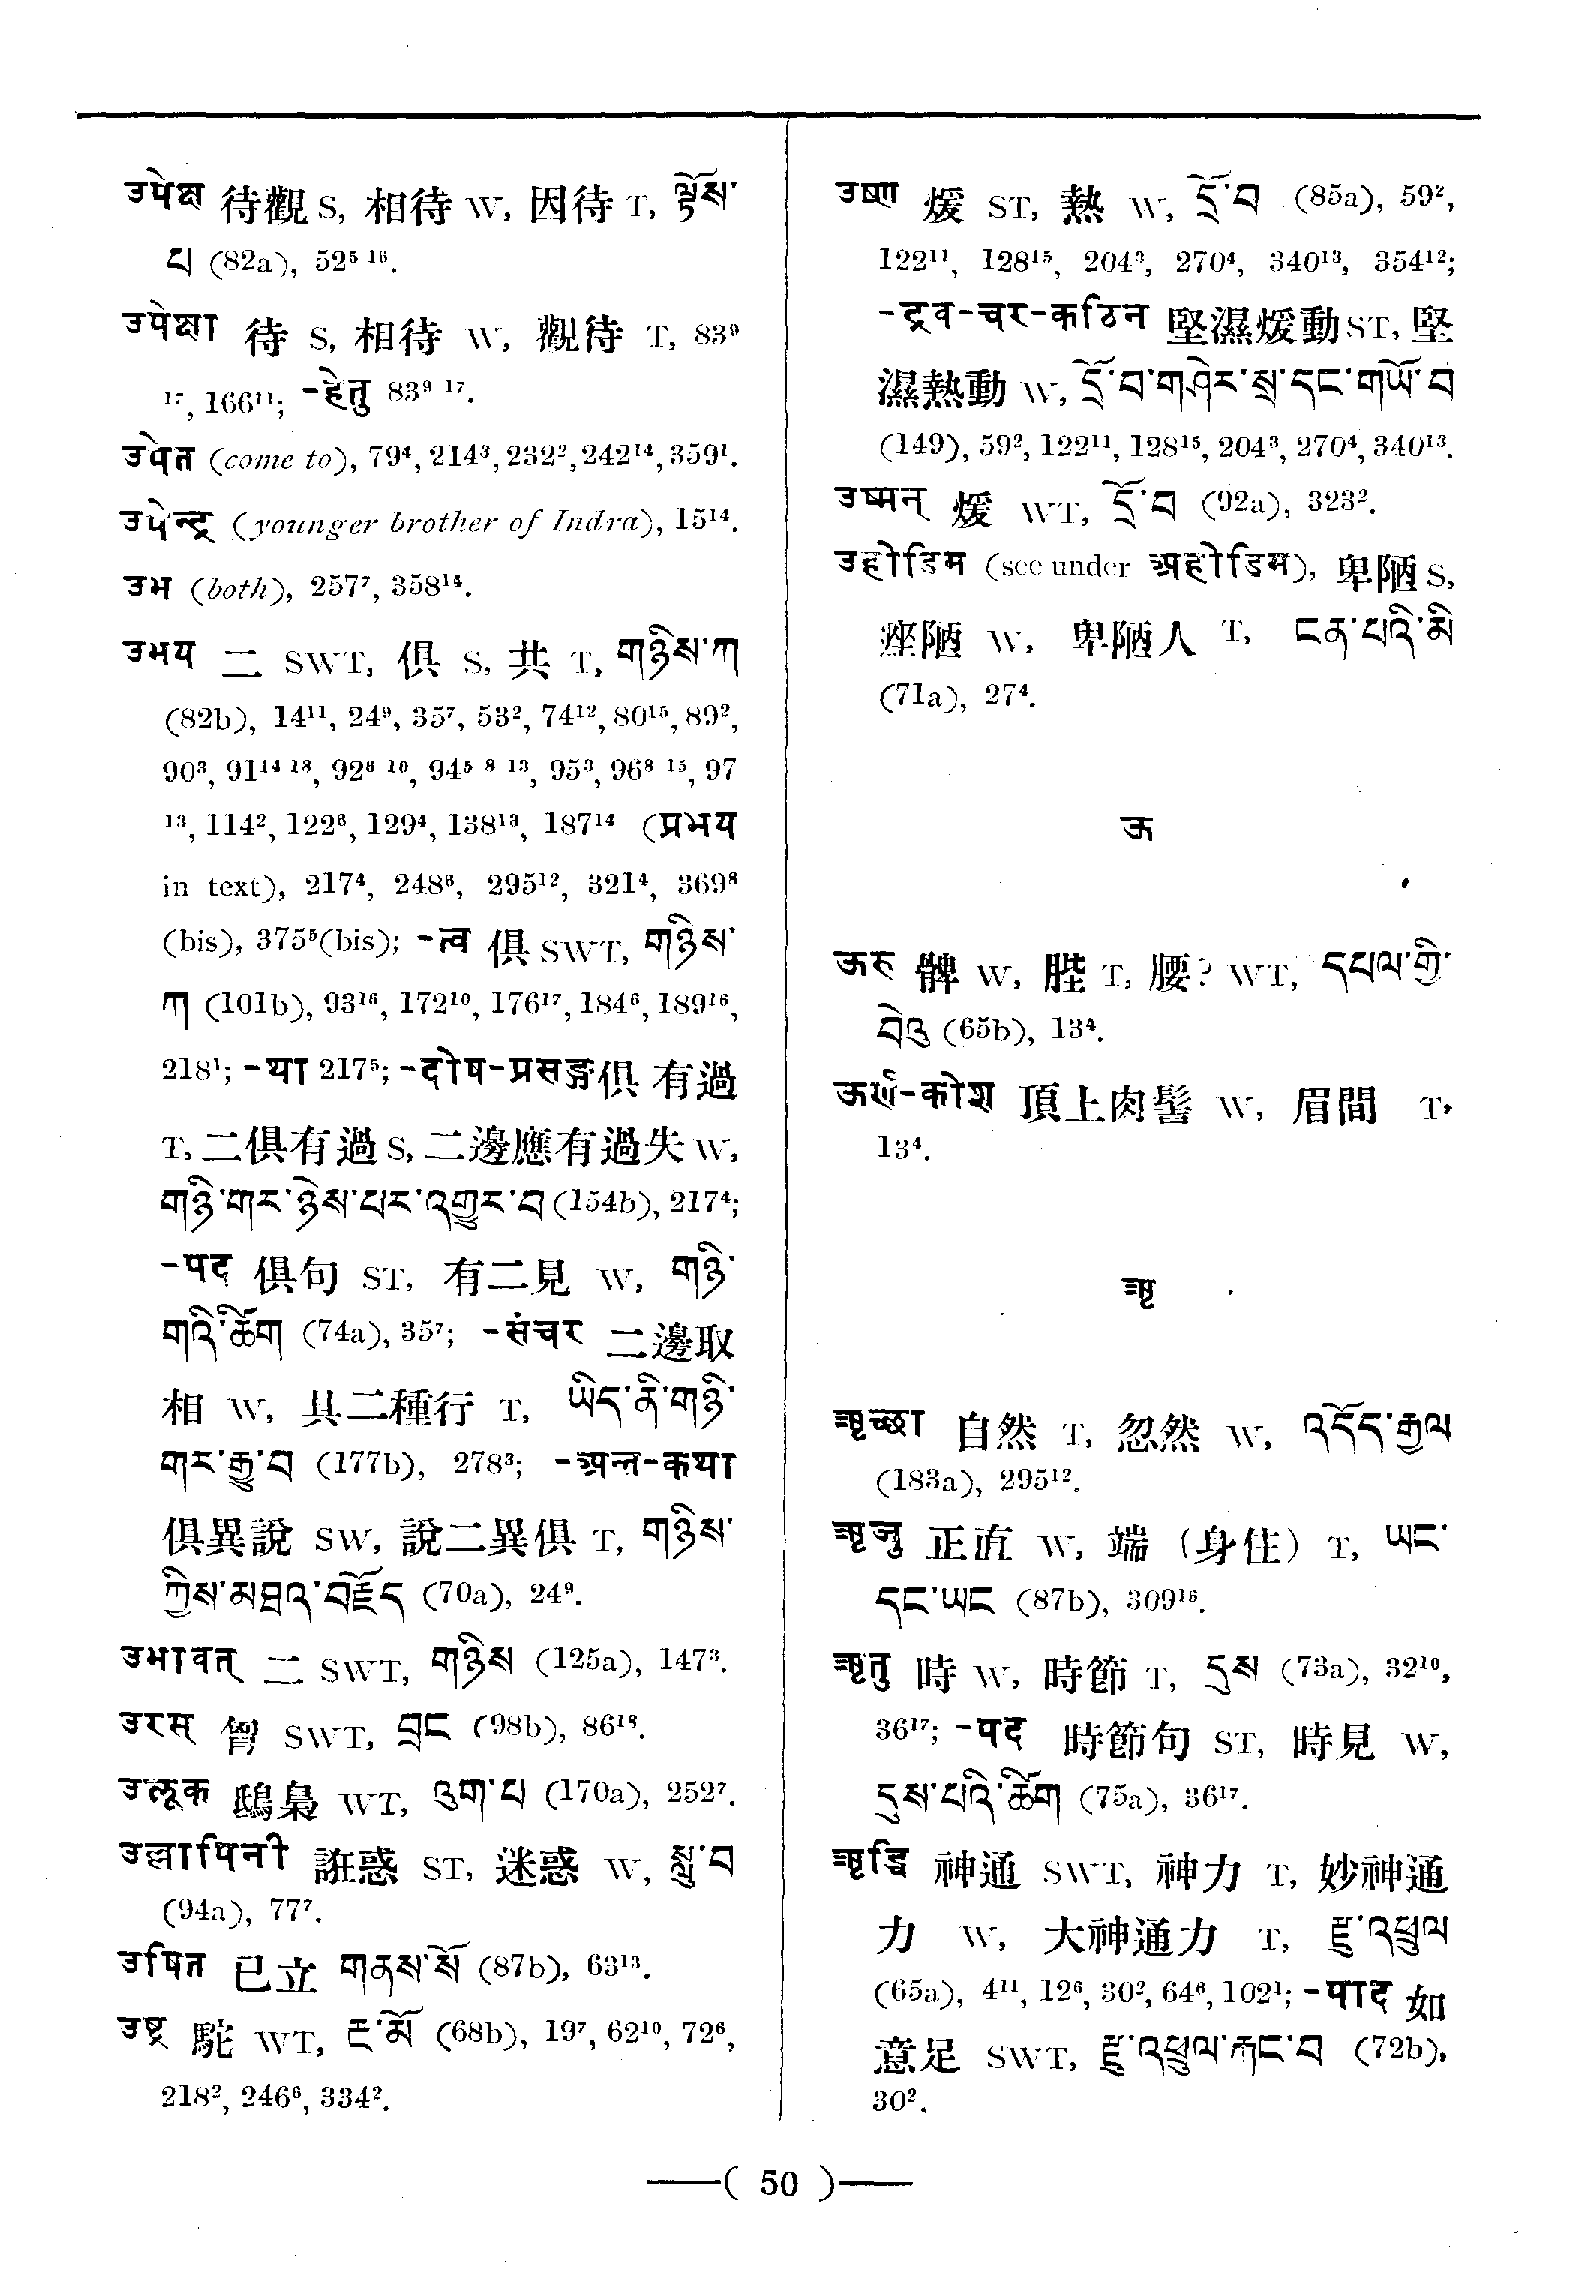 उपेक्ष 待觀 S, 相待 W, 因待 T, ལྟོས་
པ (82a), 52⁵ ¹⁶.
उपेक्षा 待 S, 相待 W, 觀待 T, 83⁹
¹⁷, 166¹¹; -हेतु 83⁹ ¹⁷.
उपेत (come to), 79⁴, 214³, 232², 242¹⁴, 359¹.
उपेन्द्र (younger brother of Indra), 15¹⁴.
उभ (both), 257⁷, 358¹⁴.
उभय 二 SWT, 俱 S, 共 T, གཉིས་ཀ
(82b), 14¹¹, 24⁹, 35⁷, 53², 74¹², 80¹⁵, 89²,
90³, 91¹⁴ ¹⁸, 92⁶ ¹⁰, 94⁵ ⁸ ¹³, 95³, 96⁸ ¹⁵, 97
¹³, 114², 122⁶, 129⁴, 138¹³, 187¹⁴ (प्रभय
in text), 217⁴, 248⁶, 295¹², 321⁴, 369⁸
(bis), 375⁵(bis); -त्व 俱 SWT, གཉིས་
ཀ (101b), 93¹⁶, 172¹⁰, 176¹⁷, 184⁶, 189¹⁶,
218¹; -या 217⁵; -दोष-प्रसङ्ग俱 有過
T, 二俱有過 S, 二邊應有過失 W,
གཉི་གར་ཉེས་པར་འགྱུར་བ (154b), 217⁴;
-पद 俱句 ST, 有二見 W, གཉི་
གའི་ཚིག (74a), 35⁷; -संचर 二邊取
相 W, 具二種行 T, ཡིད་ནི་གཉི་
གར་རྒྱུ་བ (177b), 278³; -अन्त-कथा
俱異說 SW, 說二異俱 T, གཉིས་
ཀྱིས་མཐའ་བརྗོད (70a), 24⁹.
उभावत् 二 SWT, གཉིས (125a), 147³.
उरस् 胷 SWT, བྲང (98b), 86¹⁸.
उलूक 鵄梟 WT, འུག་པ (170a), 252⁷.
उल्लापिनी 誑惑 ST, 迷惑 W, སླུ་བ
(94a), 77⁷.
उषित 已立 གནས་སོ (87b), 63¹³.
उष्ट्र 駝 WT, རྔ་མོ (68b), 19⁷, 62¹⁰, 72⁶,
218², 246⁶, 334².
उष्ण 煖 ST, 熱 W, དྲོ་བ (85a), 59²,
122¹¹, 128¹⁵, 204³, 270⁴, 340¹³, 354¹²;
-द्रव-चर-कठिन 堅濕煖動ST, 堅
濕熱動 W, དྲོ་བ་གཤེར་སྲ་དང་གཡོ་བ
(149), 59², 122¹¹, 128¹⁵, 204³, 270⁴, 340¹³.
उष्मन् 煖 WT, དྲོ་བ (92a), 323².
उहोडिम (see under अहोडिम), 卑陋 S,
痤陋 W, 卑陋人 T, ངན་པའི་མི
(71a), 27⁴.
ऊ
ऊरु 髀 W, 䏶 T, 腰? WT, དཔལ་གྱི་
བེའུ (65b), 13⁴.
ऊर्ण-कोश 頂上肉髻 W, 眉間 T,
13⁴.
ऋ
ऋच्छा 自然 T, 忽然 W, འདོད་རྒྱལ
(183a), 295¹².
ऋजु 正直 W, 端 (身住) T, ཡང་
དང་ཡང (87b), 309¹⁶.
ऋतु 時 W, 時節 T, དུས (73a), 32¹⁰,
36¹⁷; -पद 時節句 ST, 時見 W,
དུས་པའི་ཚིག (75a), 36¹⁷.
ऋद्धि 神通 SWT, 神力 T, 妙神通
力 W, 大神通力 T, རྫུ་འཕྲུལ
(65a), 4¹¹, 12⁶, 30², 64⁶, 102¹; -पाद 如
意足 SWT, རྫུ་འཕྲུལ་རྐང་བ (72b),
30².
—( 50 )—